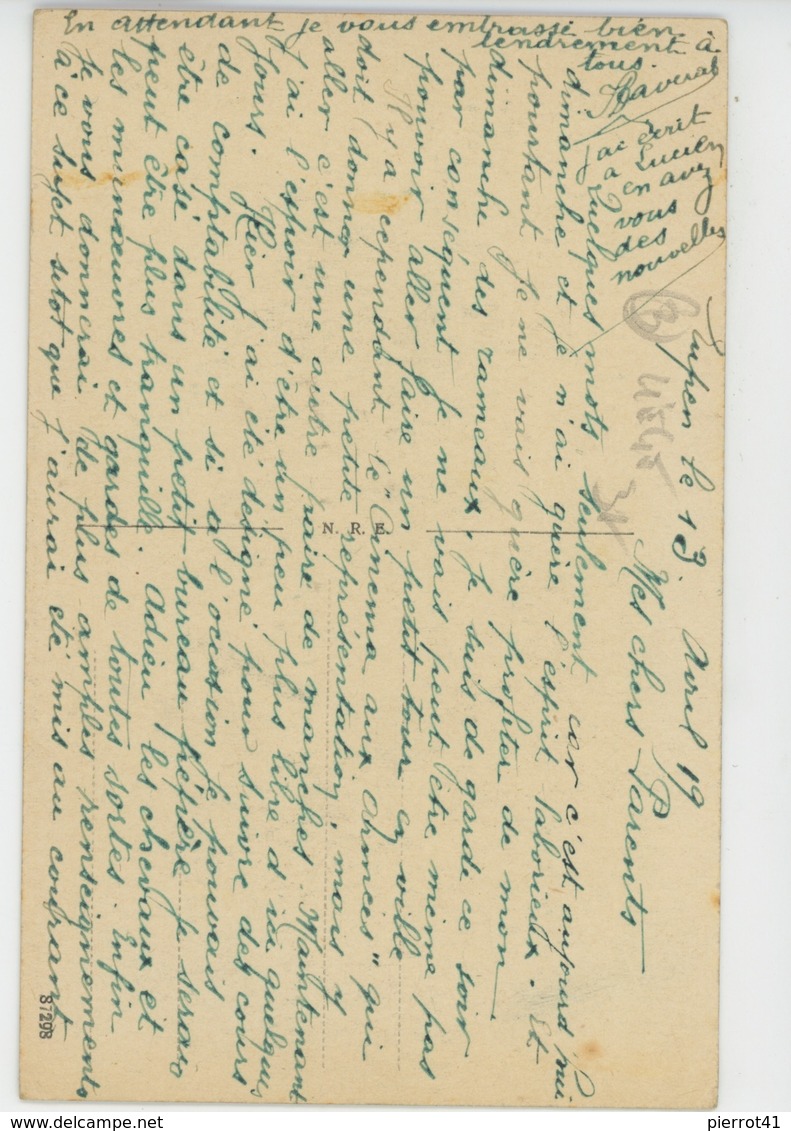 Eupen le 13 Avril 19
Mes chers Parents
Quelques mots seulement car c'est aujourd'hui
dimanche et je n'ai guère l'esprit laborieux. Et
pourtant je ne vais guère profiter de mon
dimanche des rameaux. Je suis de garde ce soir
par conséquent je ne vais peut être même pas
pouvoir aller faire un petit tour en ville
Il y a cependant le "Cinema aux Armées" qui
doit donner une petite représentation, mais y
aller c'est une autre paire de manches. Maintenant
j'ai l'espoir d'être un peu plus libre d'ici quelques
jours. Hier j'ai été désigné pour suivre des cours
de comptabilité et si a l'occasion je pouvais
être casé dans un petit bureau pépère je serais
peut être plus tranquille. Adieu les chevaux et
les manœuvres et gardes de toutes sortes. Enfin
je vous donnerai de plus amples renseignements
à ce sujet sitot que j'aurai été mis au courant
En attendant je vous embrasse bien
tendrement à
tous.
J'ai écrit
a Lucien
en avez
vous
des
nouvelles
3
N. R. E.
87298
pierrot41